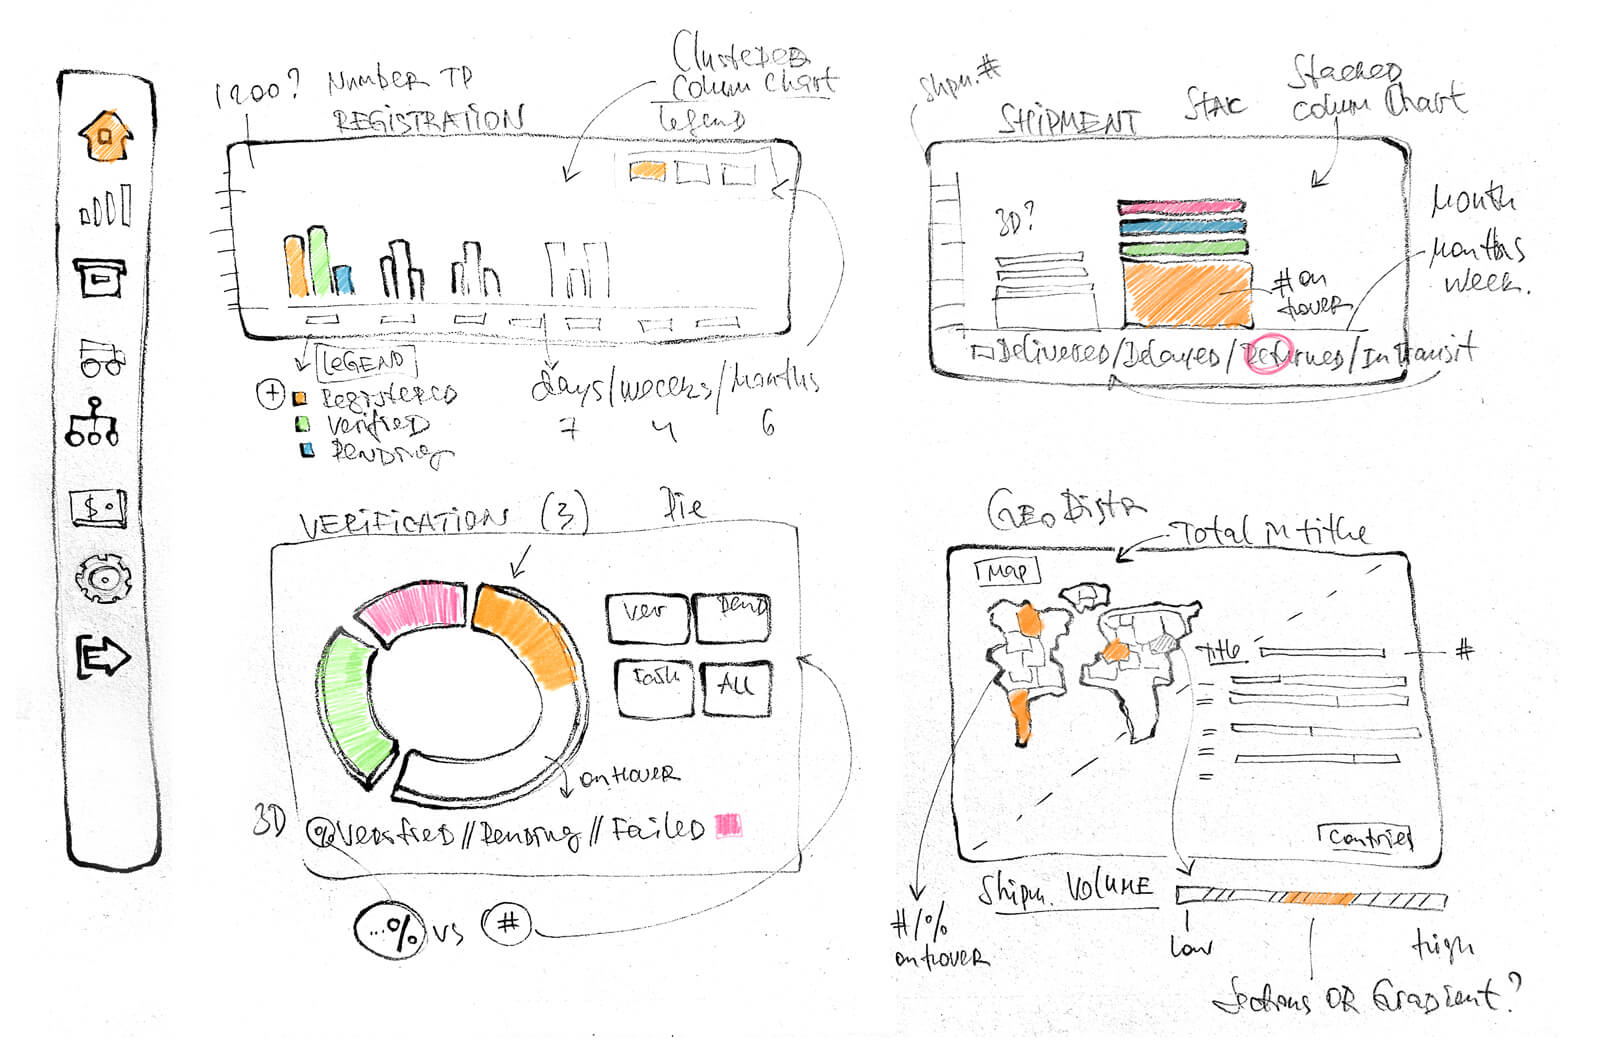 1200? Number TP
REGISTRATION
Clustered
Column Chart
legend
LEGEND
+ Registered
Verified
Pending
days/weeks/months
7 4 6
Shpm. #
SHIPMENT
Stac
Stacked
Column Chart
3D?
# on
hover
Month
Months
Week.
Delivered/Delayed/Returned/In Transit
$
VERIFICATION (3)
Pie
Ver
Pend
All
on hover
3D
% Verified//Pending//Failed
...% vs #
Geo Distr
Total in title
Map
Title
#
Countries
Shipm. Volume
#/%
on hover
low
high
Sections OR Gradient?